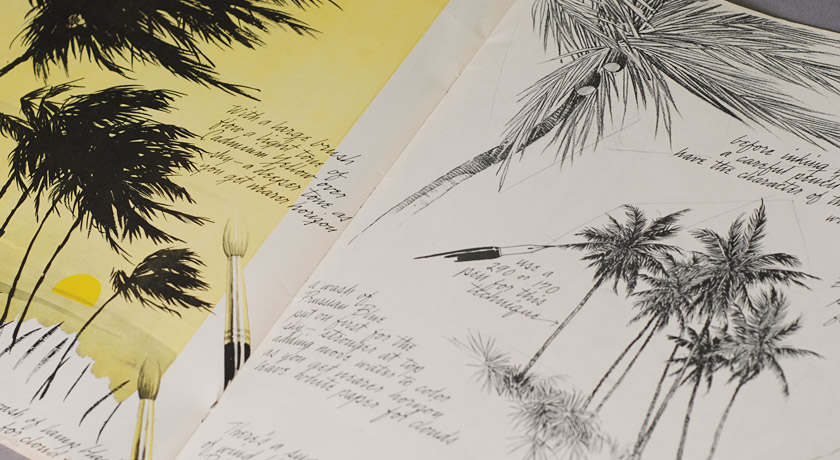 With a large brush
run a light tone of
Cadmium Yellow over
sky - a deeper tone as
you get nearer horizon
before inking
a careful
have the character of
use a
290 or 170
pen for this
technique
a wash of
Prussian Blue
put on first for the
sky - stronger at top
adding more water to color
as you get nearer horizon
leave white paper for clouds
wash of lamp
for cloud
There's a
of